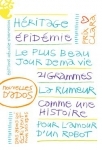 Héritage
épidémie
Le plus beau
jour de ma vie
21 grammes
La rumeur
Comme une
histoire
Pour l'amour
d'un robot
Nouvelles
d'ados